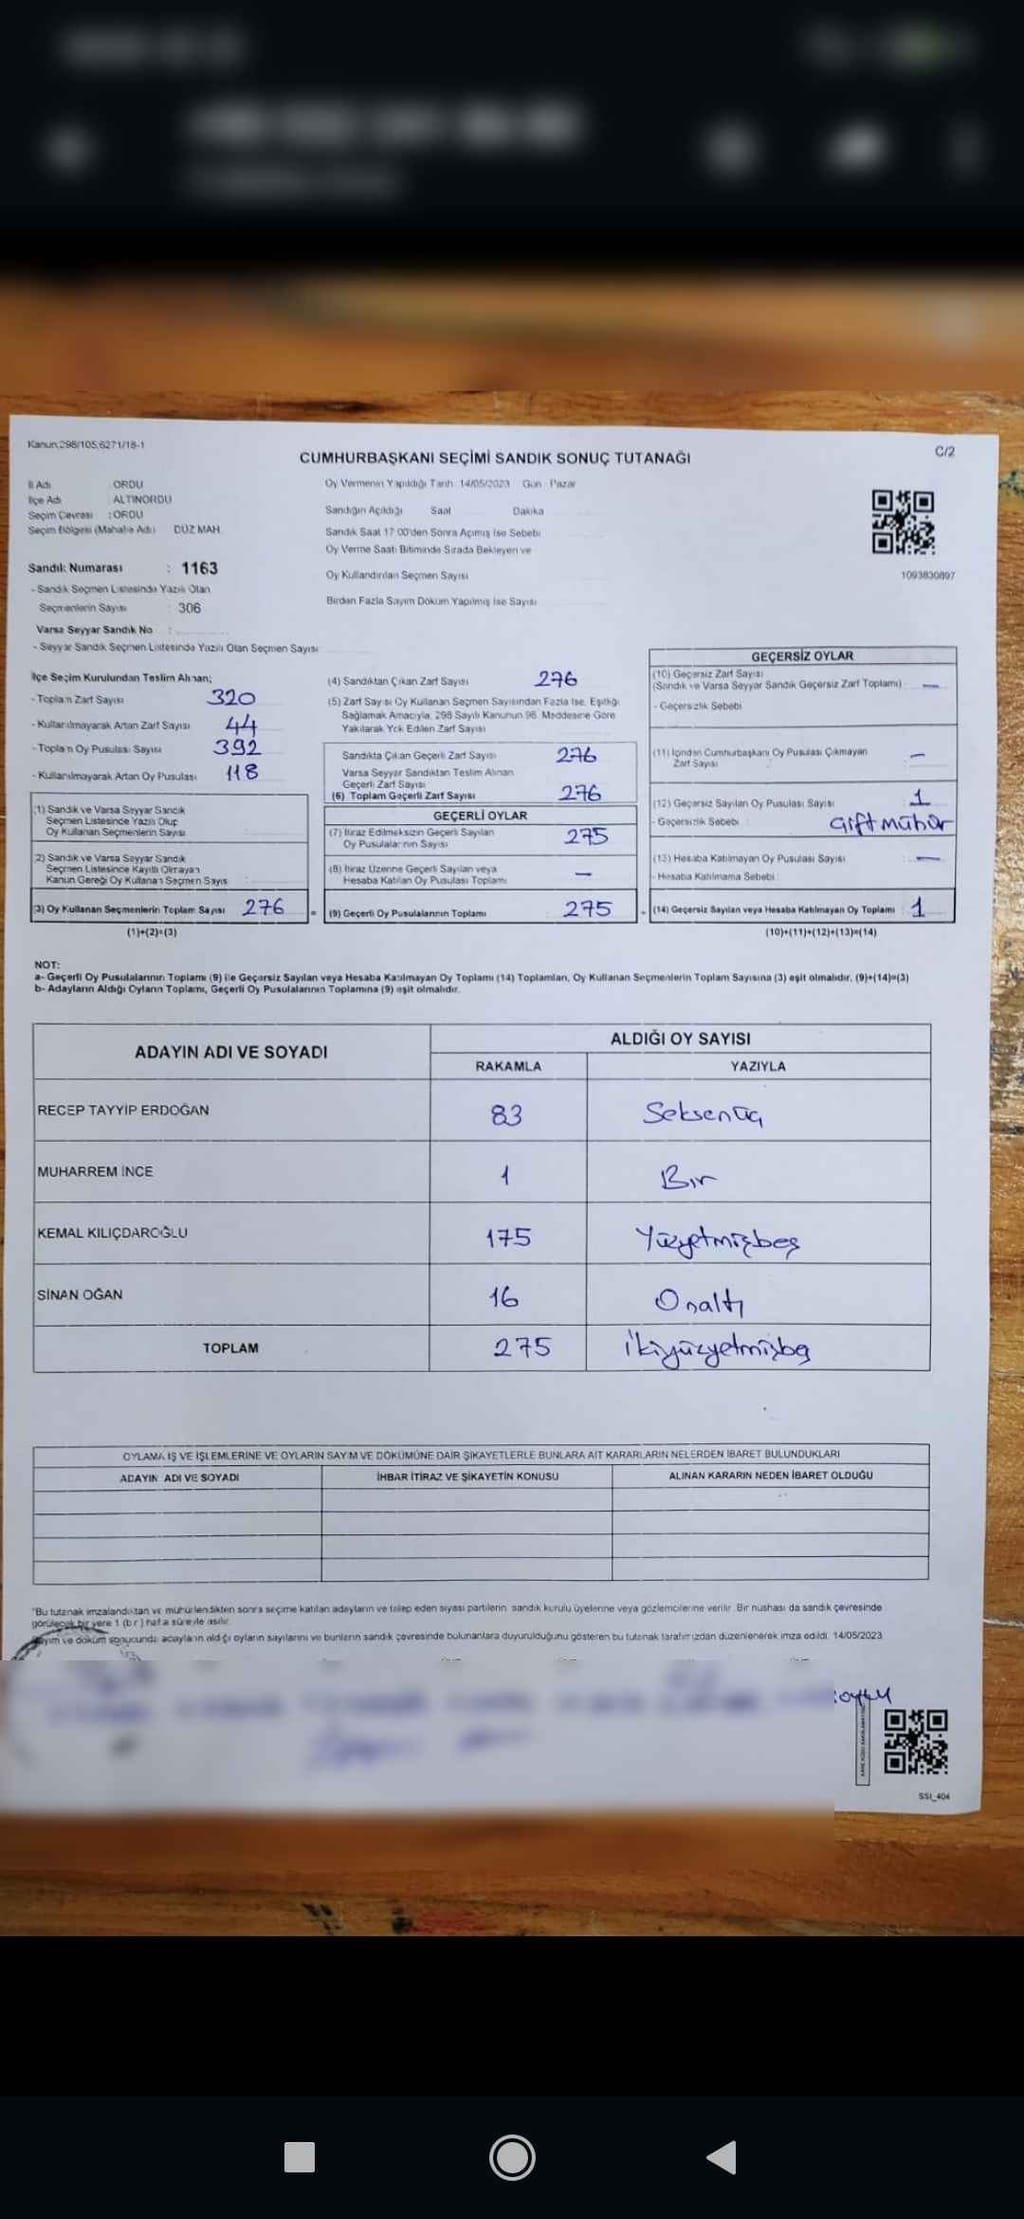 Kanun,298/105,6271/18-1
C/2
CUMHURBAŞKANI SEÇİMİ SANDIK SONUÇ TUTANAĞI
İl Adı ORDU
İlçe Adı ALTINORDU
Seçim Çevresi : ORDU
Seçim Bölgesi (Mahalle Adı) DÜZ MAH.
Oy Vermenin Yapıldığı Tarih 14/05/2023 Gün Pazar
Sandığın Açıldığı Saat Dakika
Sandık Saat 17 00'den Sonra Açımış İse Sebebi
Oy Verme Saati Bitiminde Sırada Bekleyen ve
Oy Kullandırılan Seçmen Sayısı
Birden Fazla Sayım Döküm Yapılmış İse Sayısı
1093830897
Sandık Numarası : 1163
- Sandık Seçmen Listesinde Yazılı Olan
Seçmenlerin Sayısı : 306
Varsa Seyyar Sandık No :
- Seyyar Sandık Seçmen Listesinde Yazılı Olan Seçmen Sayısı
İlçe Seçim Kurulundan Teslim Alınan;
- Toplam Zarf Sayısı 320
- Kullanılmayarak Artan Zarf Sayısı 44
- Toplam Oy Pusulası Sayısı 392
- Kullanılmayarak Artan Oy Pusulası 118
(1) Sandık ve Varsa Seyyar Sandık
Seçmen Listesinde Yazılı Olup
Oy Kullanan Seçmenlerin Sayısı
2) Sandık ve Varsa Seyyar Sandık
Seçmen Listesinde Kayıtlı Olmayan
Kanun Gereği Oy Kullanan Seçmen Sayıs
(3) Oy Kullanan Seçmenlerin Toplam Sayısı 276 =
(1)+(2)=(3)
(4) Sandıktan Çıkan Zarf Sayısı 276
(5) Zarf Sayısı Oy Kullanan Seçmen Sayısından Fazla İse, Eşitliği
Sağlamak Amacıyla, 298 Sayılı Kanunun 98. Maddesine Göre
Yakılarak Yok Edilen Zarf Sayısı
Sandıkta Çıkan Geçerli Zarf Sayısı 276
Varsa Seyyar Sandıktan Teslim Alınan
Geçerli Zarf Sayısı
(6) Toplam Geçerli Zarf Sayısı 276
GEÇERLİ OYLAR
(7) İtiraz Edilmeksizin Geçerli Sayılan
Oy Pusulalarının Sayısı 275
(8) İtiraz Üzerine Geçerli Sayılan veya
Hesaba Katılan Oy Pusulası Toplamı —
(9) Geçerli Oy Pusulalarının Toplamı 275
GEÇERSİZ OYLAR
(10) Geçersiz Zarf Sayısı
(Sandık ve Varsa Seyyar Sandık Geçersiz Zarf Toplamı) : —
- Geçersizlik Sebebi
(11) İçinden Cumhurbaşkanı Oy Pusulası Çıkmayan
Zarf Sayısı —
(12) Geçersiz Sayılan Oy Pusulası Sayısı 1
- Geçersizlik Sebebi : Çift mühür
(13) Hesaba Katılmayan Oy Pusulası Sayısı : —
- Hesaba Katılmama Sebebi
(14) Geçersiz Sayılan veya Hesaba Katılmayan Oy Toplamı : 1
(10)+(11)+(12)+(13)=(14)
NOT:
a- Geçerli Oy Pusulalarının Toplamı (9) ile Geçersiz Sayılan veya Hesaba Katılmayan Oy Toplamı (14) Toplamları, Oy Kullanan Seçmenlerin Toplam Sayısına (3) eşit olmalıdır. (9)+(14)=(3)
b- Adayların Aldığı Oyların Toplamı, Geçerli Oy Pusulalarının Toplamına (9) eşit olmalıdır.
ADAYIN ADI VE SOYADI
ALDIĞI OY SAYISI
RAKAMLA YAZIYLA
RECEP TAYYİP ERDOĞAN 83 Seksenüç
MUHARREM İNCE 1 Bir
KEMAL KILIÇDAROĞLU 175 Yüzyetmişbeş
SİNAN OĞAN 16 Onaltı
TOPLAM 275 İkiyüzyetmişbeş
OYLAMA İŞ VE İŞLEMLERİNE VE OYLARIN SAYIM VE DÖKÜMÜNE DAİR ŞİKAYETLERLE BUNLARA AİT KARARLARIN NELERDEN İBARET BULUNDUKLARI
ADAYIN ADI VE SOYADI İHBAR İTİRAZ VE ŞİKAYETİN KONUSU ALINAN KARARIN NEDEN İBARET OLDUĞU
"Bu tutanak imzalandıktan ve mühürlendikten sonra seçime katılan adayların ve talep eden siyasi partilerin sandık kurulu üyelerine veya gözlemcilerine verilir. Bir nüshası da sandık çevresinde
görülecek bir yere 1 (bir) hafta süreyle asılır.
Sayım ve döküm sonucunda adayların aldığı oyların sayılarını ve bunların sandık çevresinde bulunanlara duyurulduğunu gösteren bu tutanak tarafımızdan düzenlenerek imza edildi. 14/05/2023
SSI_404